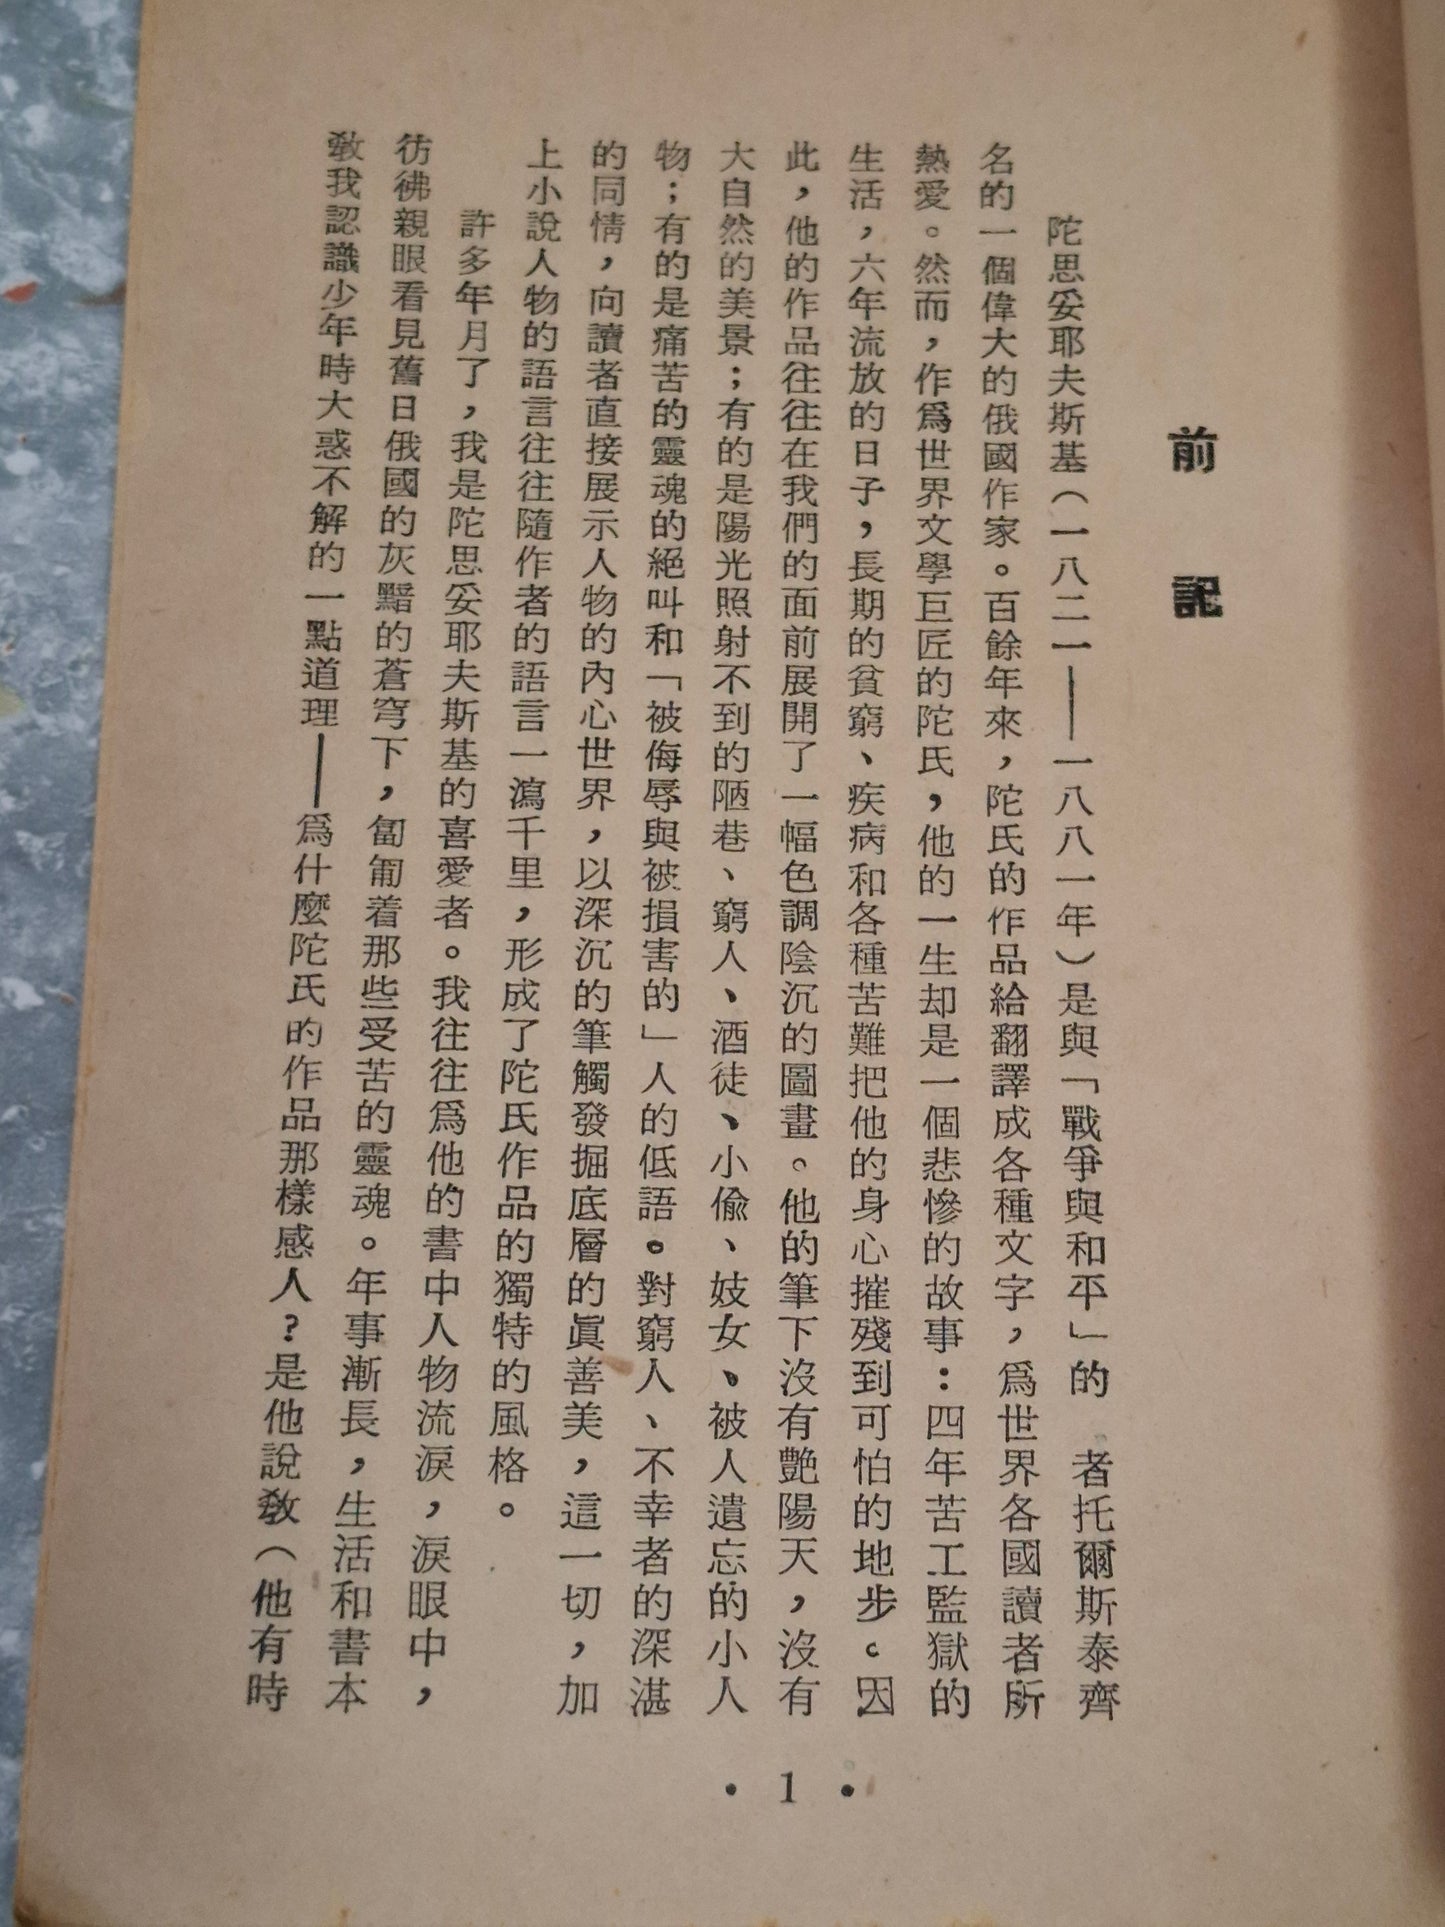 前記
陀思妥耶夫斯基（一八二一——一八八一年）是與「戰爭與和平」的　者托爾斯泰齊
名的一個偉大的俄國作家。百餘年來，陀氏的作品給翻譯成各種文字，爲世界各國讀者所
熱愛。然而，作爲世界文學巨匠的陀氏，他的一生却是一個悲慘的故事：四年苦工監獄的
生活，六年流放的日子，長期的貧窮、疾病和各種苦難把他的身心摧殘到可怕的地步。因
此，他的作品往往在我們的面前展開了一幅色調陰沉的圖畫。他的筆下沒有艷陽天，沒有
大自然的美景；有的是陽光照射不到的陋巷、窮人、酒徒、小偷、妓女、被人遺忘的小人
物；有的是痛苦的靈魂的絕叫和「被侮辱與被損害的」人的低語。對窮人、不幸者的深湛
的同情，向讀者直接展示人物的內心世界，以深沉的筆觸發掘底層的眞善美，這一切，加
上小說人物的語言往往隨作者的語言一瀉千里，形成了陀氏作品的獨特的風格。
許多年月了，我是陀思妥耶夫斯基的喜愛者。我往往爲他的書中人物流淚，淚眼中，
彷彿親眼看見舊日俄國的灰黯的蒼穹下，匐匍着那些受苦的靈魂。年事漸長，生活和書本
敎我認識少年時大惑不解的一點道理——爲什麼陀氏的作品那樣感人？是他說敎（他有時
• 1 •